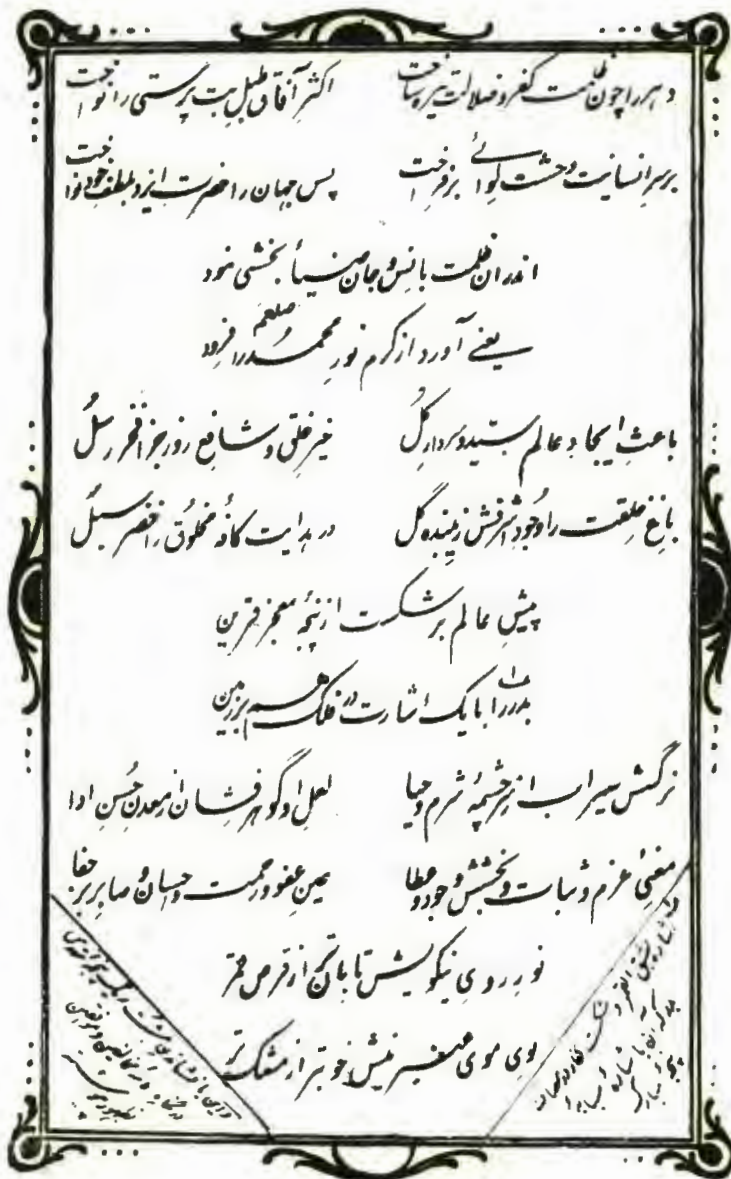 دهر را چون ظلمت کفر و ضلالت تیره ساخت اکثر آفاق طبل بت پرستی را نواخت
بر سر انسانیت وحشت لوائے برفراخت پس جهان را حضرت ایزد بلطف خود نواخت
اندران ظلمت بانس و جان ضیأ بخشی نمود
یعنے آورد از کرم نور محمد صلعم را فرود
باعثِ ایجادِ عالم سیّد و سردارِ کُل خیر خلق و شافع روز جزا فخر رسُل
باغِ خلقت را وُجودِ اشرفش زیبنده گل در هدایت کافهٔ مخلوُق را خضر سبُل
پیشِ عالم بر شکست از پنجهٔ معجز قرین
بدر را با یک اشارت در فلک هم بر زمین
نرگسش سیراب از سرچشمهٔ شرم و حیا لعلِ او گوهر فشان از معدنِ حُسنِ ادا
معنیٔ عزم و ثبات و بخشش و جود و عطا عینِ عفو و رحمت و احسان و صابر بر جفا
نورِ روی نیکویش تابان‌تر از قرص قمر
بوی موی عنبرینش خوبتر از مشک تر